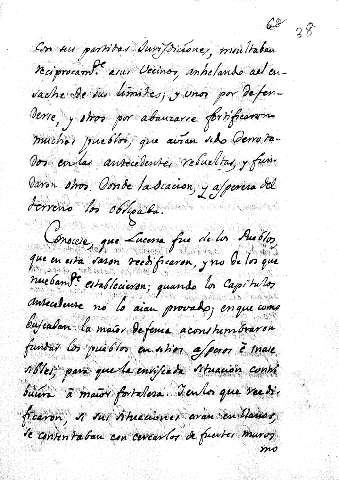 68 38
con sus partidas Jurisdiciones, insultaban
reciprocamte. a sus Vecinos, anhelando a el en-
sache de sus limites; y unos por defen-
derse, y otros por abanzarse fortificaron
muchos pueblos, que avian sido Derrota-
dos en las antecedentes rebueltas, y fun-
daron otros. Donde la ocacion, y aspereza del
terreno los obligaba.
Conocese, que Lucena fue de los Pueblos,
que en esta sason reedificaron, y no de los que
nuebamte. establecieron; quando los Capitulos
antecedentes no lo aian provado; en que como
buscaban la maior defensa acostumbraron
fundar los pueblos en sitios asperos è inac-
sibles, para que la enriscada situación contri
buiera à maior fortaleza. I en los que reedi-
ficaron, si sus situaciones eran en llanos,
se contentaban con cercarlos de fuertes muros
mo